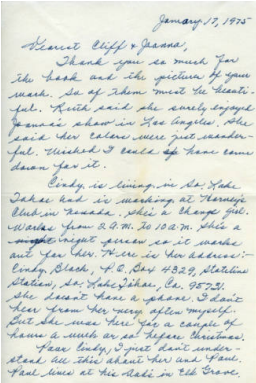 January 17, 1975
Dearest Cliff & Joanna,
Thank you so much for
the book and the picture of your
work. So of them must be beauti-
ful. Ruth said she surely enjoyed
Joanna's show in Los Angeles. She
said her colors were just wonder-
ful. Wished I could have come
down for it.
Cindy, is living, in So. Lake
Tahoe and is working at Harvey's
Club in Nevada. She's a change girl.
Works from 2 A.M. to 10 A.M. She's a
night person so it works
out for her. Here is her address:-
Cindy Black, P.O. Box 4329, Stateline
Station, So. Lake Tahoe, Ca. 95731.
She doesn't have a phone. I don't
hear from her very often myself.
But she was here for a couple of
hours a week or so before Christmas.
Poor Cindy, I just don't under-
stand all this about her and Paul.
Paul lives at his Dad's in Elk Grove.